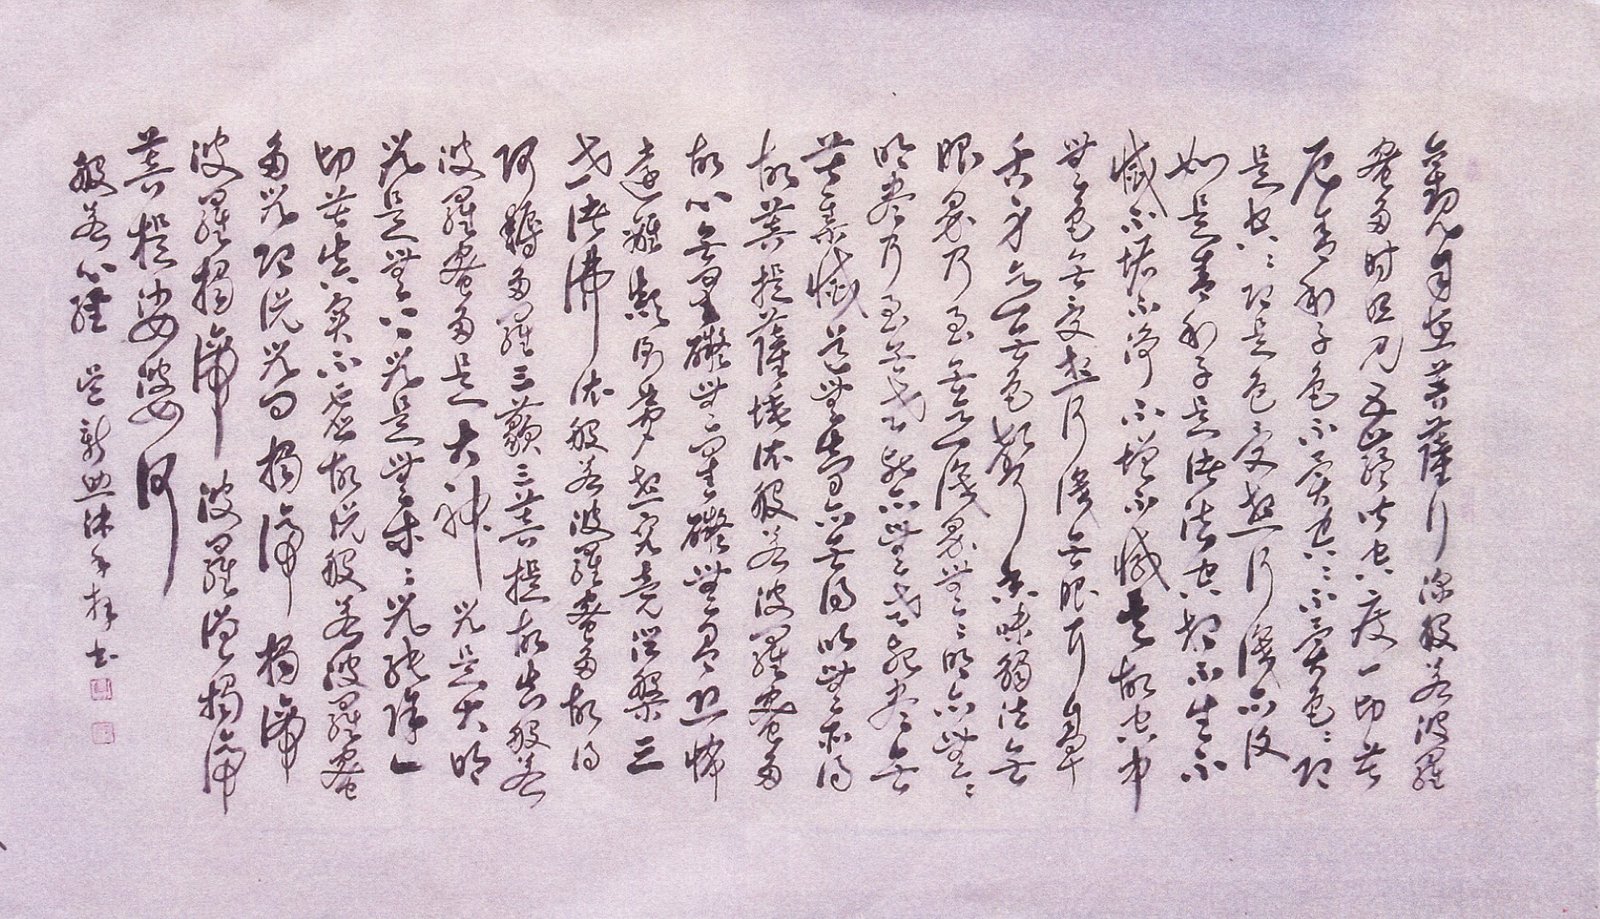 觀自在菩薩行深般若波羅
蜜多時照見五蘊皆空度一切苦
厄舍利子色不異空々不異色々即
是空々即是色受想行識亦復
如是舍利子是諸法空相不生不
滅不垢不淨不增不減是故空中
無色無受想行識無眼耳鼻
舌身意無色聲香味觸法無
眼界乃至無意識界無々明亦無々
明盡乃至無老死亦無老死盡無
苦集滅道無智亦無得以無所得
故菩提薩埵依般若波羅蜜多
故心無罣礙無罣礙無有恐怖
遠離顛倒夢想究竟涅槃三
世諸佛依般若波羅蜜多故得
阿耨多羅三藐三菩提故知般若
波羅蜜多是大神咒是大明
咒是無上咒是無等々咒能除一
切苦真實不虛故說般若波羅蜜
多咒即說咒曰揭諦揭諦
波羅揭諦波羅僧揭諦
菩提娑婆訶
般若心經 沐手拜書